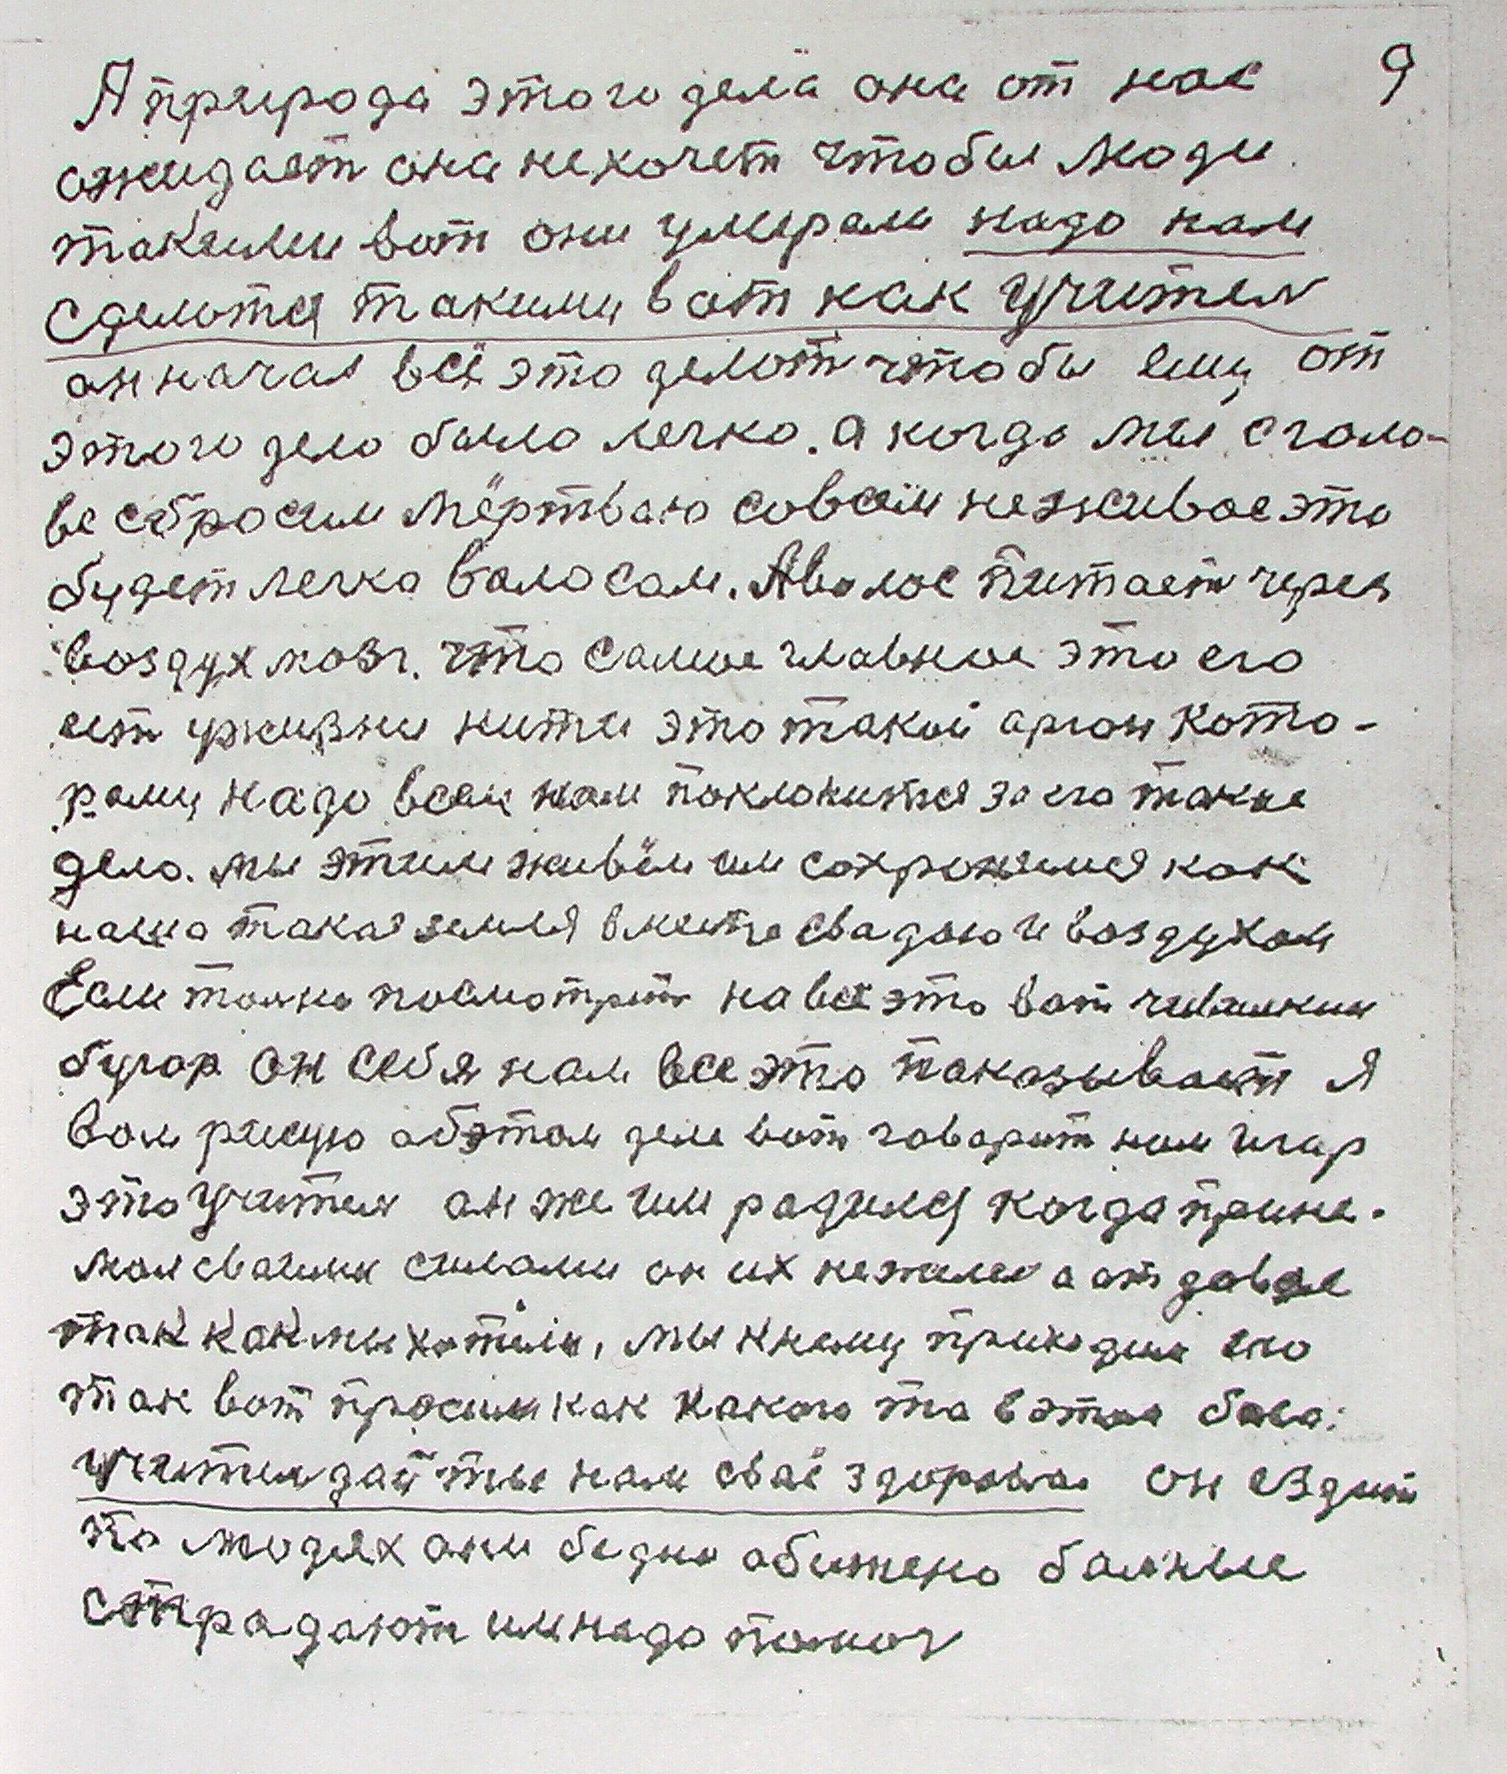 9
А природа этого дела она от нас
ожидает она нехочет чтобы люди
такими вот они умерали надо нам
сделотся такими вот как учител
он начал всё это делот чтобы ему от
этого дело было легко. а когда мы с голо-
ве сбросим мёртваю совсем неживое это
будет легко волосам. А волос питает через
воздух мозг. что самое главное это его
ест ужизни нити это такой арган кото-
рому надо всем нам поклонится за его такое
дело. мы этим живём им сохронямся как
наша така земля вместе свадою и воздухом
Если толко посмотрит на всё это вот чивилкин
бугор он себя нам все это паказывает я
вам рисую обэтом деле вот говорит нам игар
это учител он же им радился когда прине-
мал сваими силами он их нежалел а отдавал
так как мы хотели, мы кнему приходим его
так вот просим как какого та вэтом бога:
учител дай ты нам сваё здоровя он ездит
по людях они бедно обижено балные
страдают им надо помоч